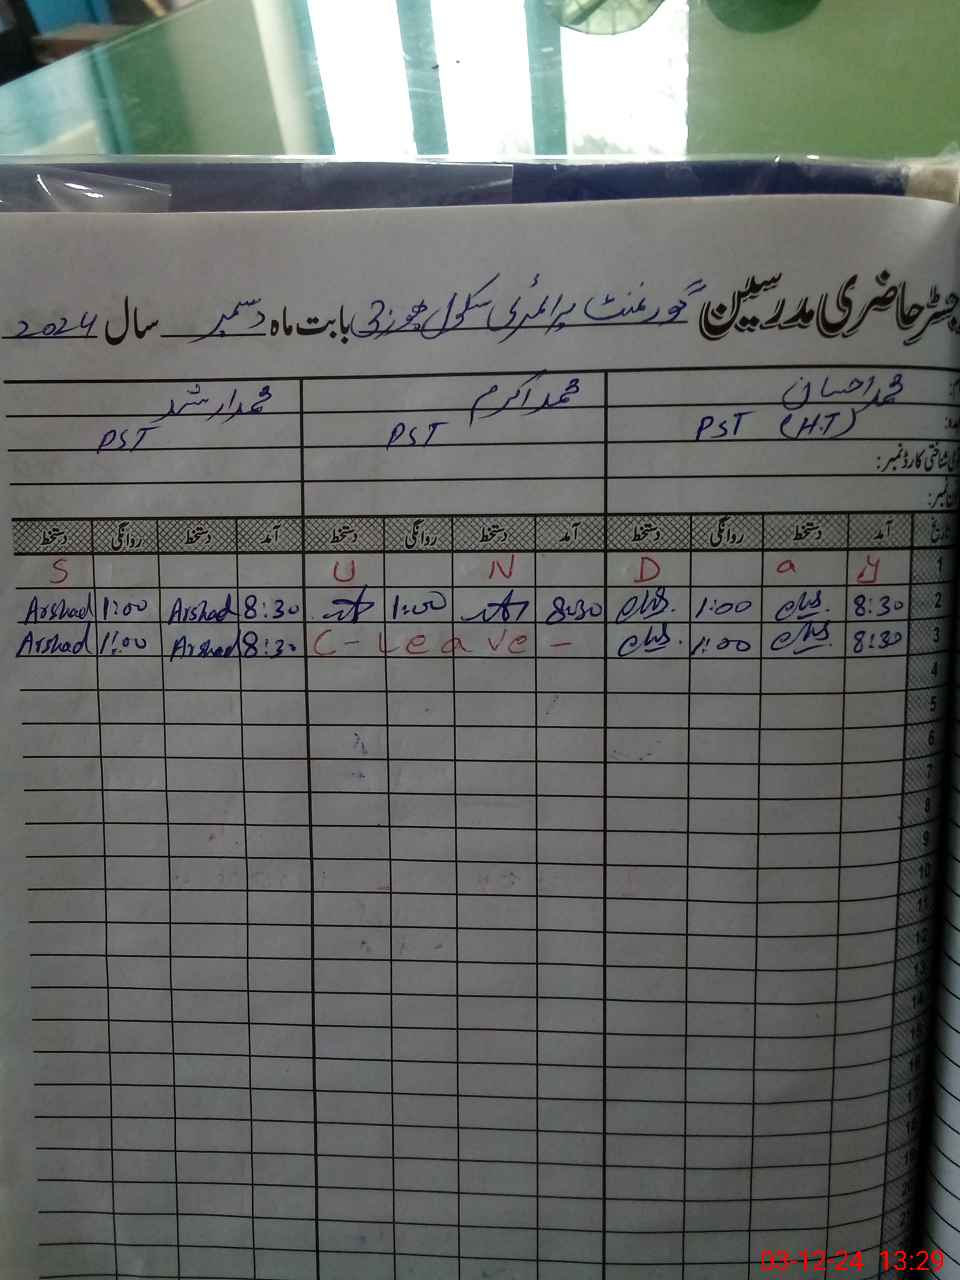 رجسٹر حاضری مدرسین گورنمنٹ پرائمری سکول بابت ماہ دسمبر سال 2024
محمد احسان محمد اکرم محمد ارشد
PST (H.T) PST PST
شناختی کارڈ نمبر:
نمبر:
تاریخ آمد دستخط روانگی دستخط آمد دستخط روانگی دستخط آمد دستخط روانگی دستخط
S U N D a y 1
Arshad 1:00 Arshad 8:30 1:00 8:30 1:00 8:30 2
Arshad 1:00 Arshad 8:30 C-Leave- 1:00 8:30 3
4
5
6
7
8
9
10
11
12
13
14
15
03-12-24 13:29